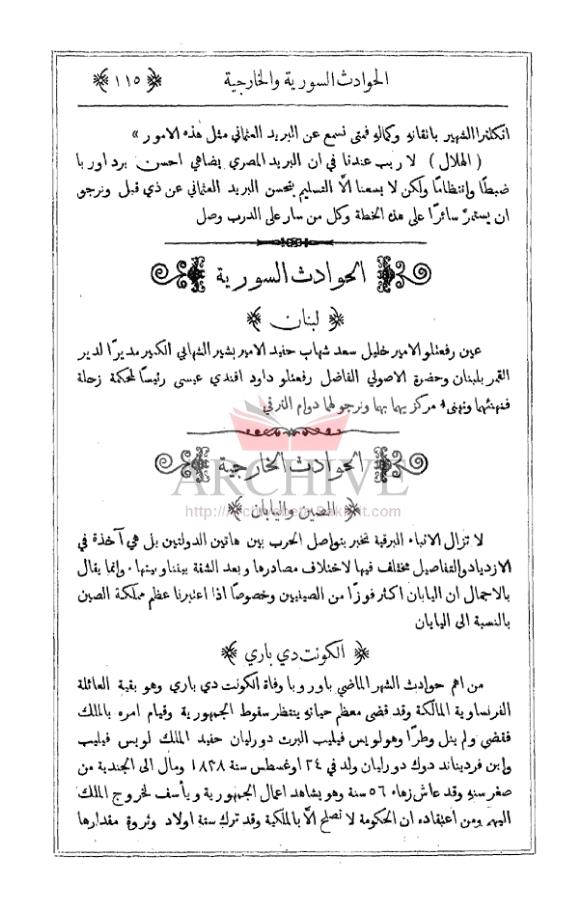 الحوادث السورية والخارجية
﴿ ١١٥ ﴾
انكلترا الشهير باتقانهِ وكمالهِ فمتى نسمع عن البريد العثماني مثل هذه الامور »
( الهلال ) لا ريب عندنا في ان البريد المصري يضاهي احسن برد اوربا
ضبطًا وانتظامًا ولكن لا يسعنا الَّا التسليم بتحسن البريد العثماني عن ذي قبل ونرجو
ان يستمرَّ سائرًا على هذه الخطة وكل من سار على الدرب وصل
الحوادث السورية
﴿ لبنان ﴾
عين رفعتلو الامير خليل سعد شهاب حفيد الامير بشير الشهابي الكبير مديرًا لدير
القمر بلبنان وحضرة الاصولي الفاضل رفعتلو داود افندي عيسى رئيسًا لمحكمة زحلة
فنهنئهما ونهنىء مركزيهما بهما ونرجو لهما دوام الترقي
الحوادث الخارجية
﴿ الصين واليابان ﴾
لا تزال الانباء البرقية تخبر بتواصل الحرب بين هاتين الدولتين بل هي آخذة في
الازدياد والتفاصيل مختلف فيها لاختلاف مصادرها وبعد الشقة بيننا وبينها وانما يقال
بالاجمال ان اليابان اكثر فوزًا من الصينيين وخصوصًا اذا اعتبرنا عظم مملكة الصين
بالنسبة الى اليابان
﴿ الكونت دي باري ﴾
من اهم حوادث الشهر الماضي باوروبا وفاة الكونت دي باري وهو بقية العائلة
الفرنساوية المالكة وقد قضى معظم حياتهِ ينتظر سقوط الجمهورية وقيام امره بالملك
فقضي ولم ينل وطرًا وهو لويس فيليب البرت دورليان حفيد الملك لويس فيليب
وابن فرديناند دوك دورليان ولد في ٢٤ اوغسطس سنة ١٨٣٨ ومال الى الجندية من
صغر سنهِ وقد عاش زهاء ٥٦ سنة وهو يشاهد اعمال الجمهورية ويأسف لخروج الملك
اليهم ومن اعتقاده ان الحكومة لا تصلح الَّا بالملكية وقد ترك ستة اولاد وثروة مقدارها
ARCHIVE